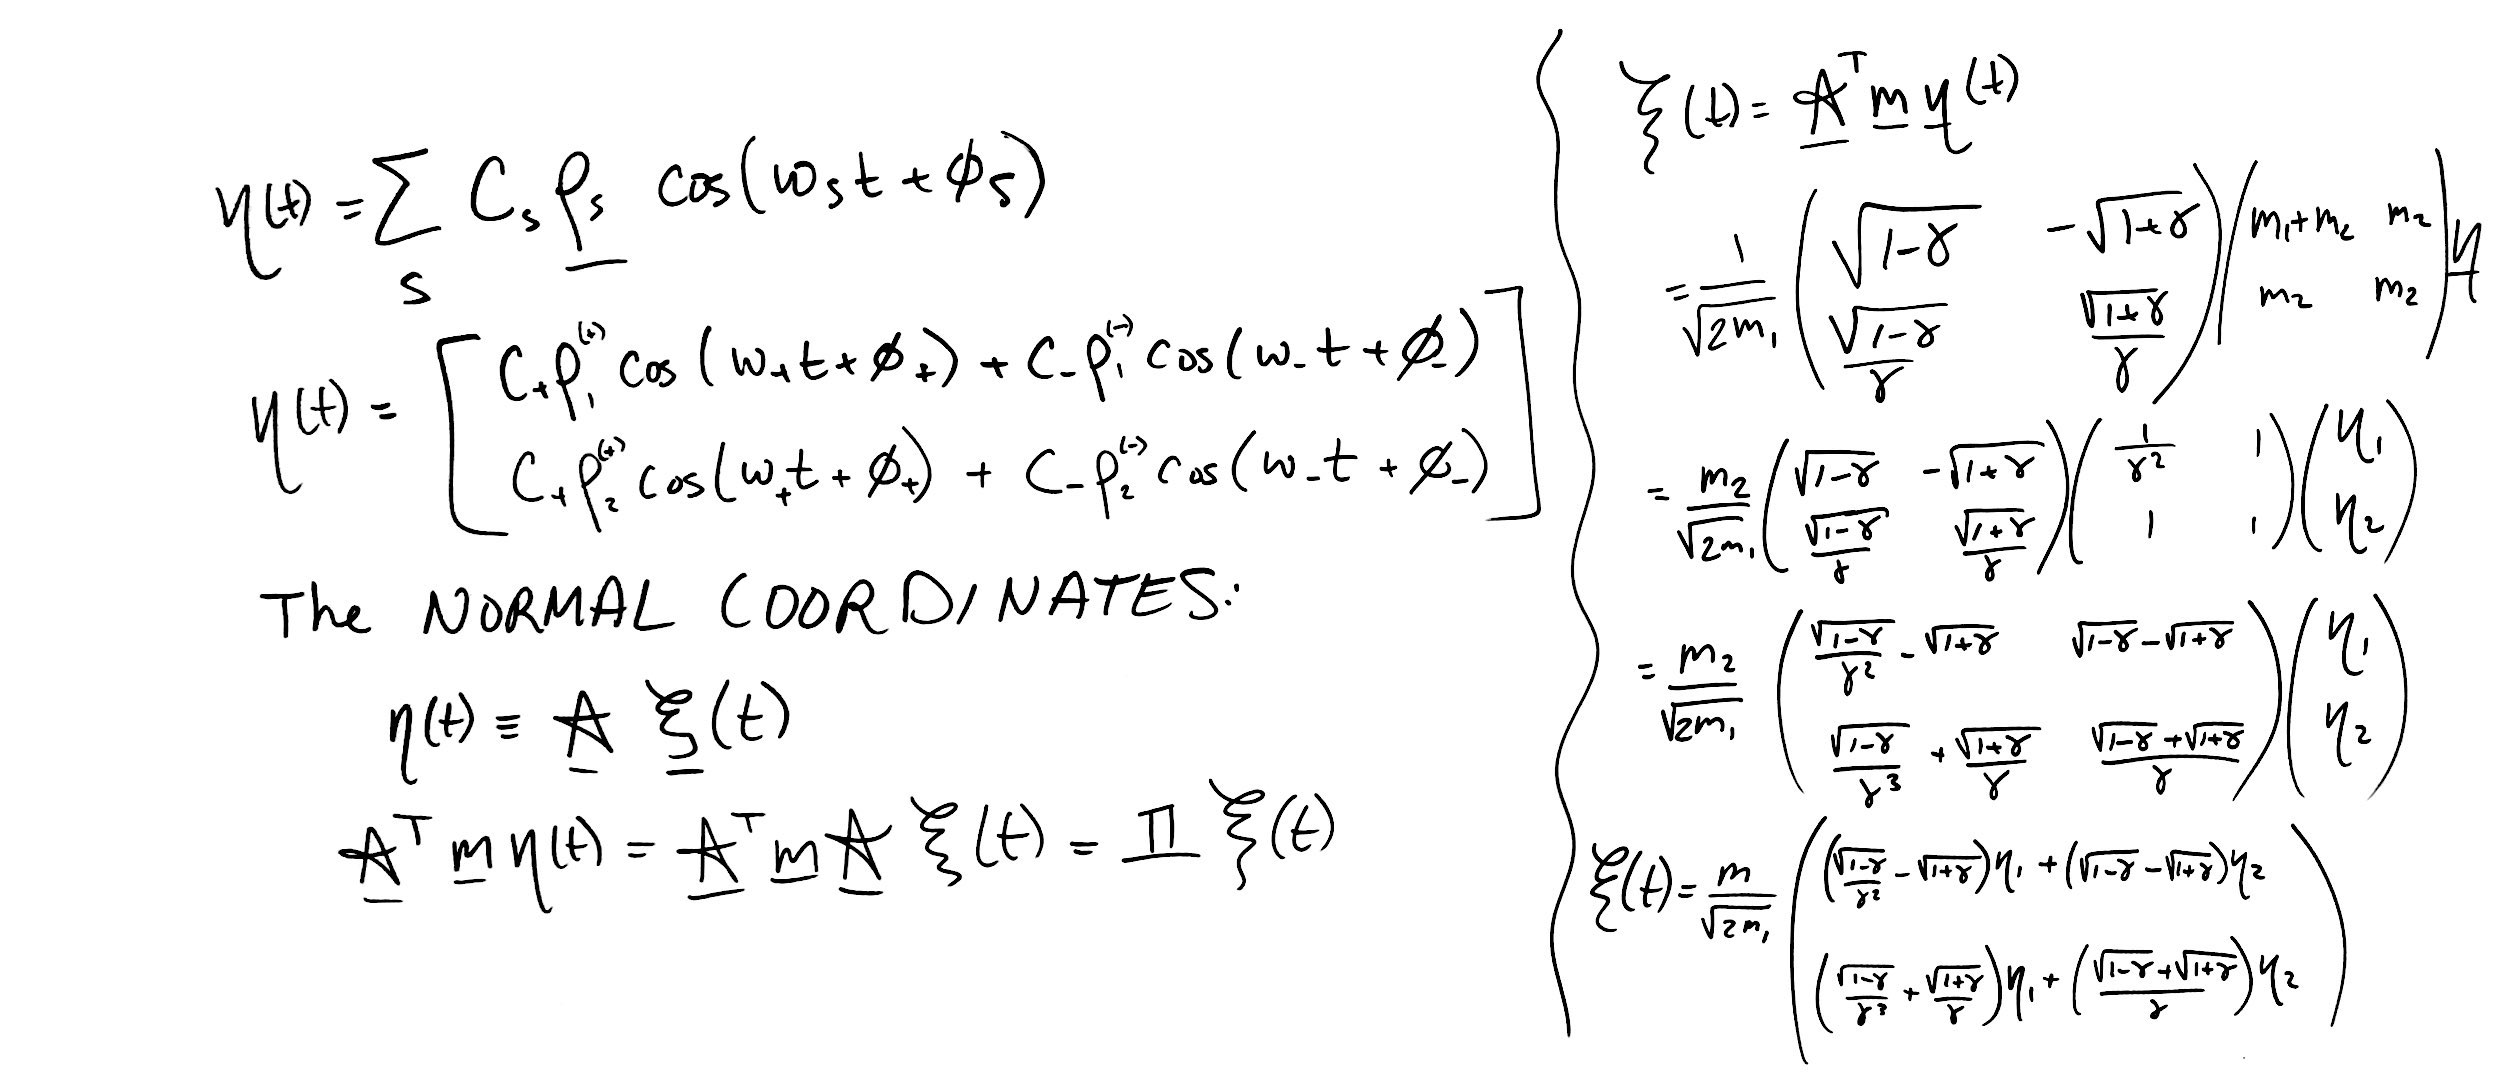 η(t) = ∑_s C_s ρ_s cos(ω_s t + φ_s)
η(t) = [ C₊ρ₁⁽⁺⁾ cos(ω₊t + φ₊) + C₋ρ₁⁽⁻⁾ cos(ω₋t + φ₋)
C₊ρ₂⁽⁺⁾ cos(ω₊t + φ₊) + C₋ρ₂⁽⁻⁾ cos(ω₋t + φ₋) ]
The NORMAL COORDINATES:
η(t) ≡ A ξ(t)
Aᵀ m η(t) = Aᵀ m A ξ(t) = 𝟙 ξ(t)
ξ(t) = Aᵀ m η(t)
= 1/√(2m₁) ( √(1-γ) -√(1+γ) ; √(1-γ)/γ √(1+γ)/γ ) ( m₁+m₂ m₂ ; m₂ m₂ ) η
= m₂/√(2m₁) ( √(1-γ) -√(1+γ) ; √(1-γ)/γ √(1+γ)/γ ) ( 1/γ² 1 ; 1 1 ) ( η₁ ; η₂ )
= m₂/√(2m₁) ( √(1-γ)/γ² - √(1+γ) √(1-γ) - √(1+γ) ; √(1-γ)/γ³ + √(1+γ)/γ (√(1-γ) + √(1+γ))/γ ) ( η₁ ; η₂ )
ξ(t) = m/√(2m₁) ( (√(1-γ)/γ² - √(1+γ))η₁ + (√(1-γ) - √(1+γ))η₂
(√(1-γ)/γ³ + √(1+γ)/γ)η₁ + ((√(1-γ) + √(1+γ))/γ)η₂ )